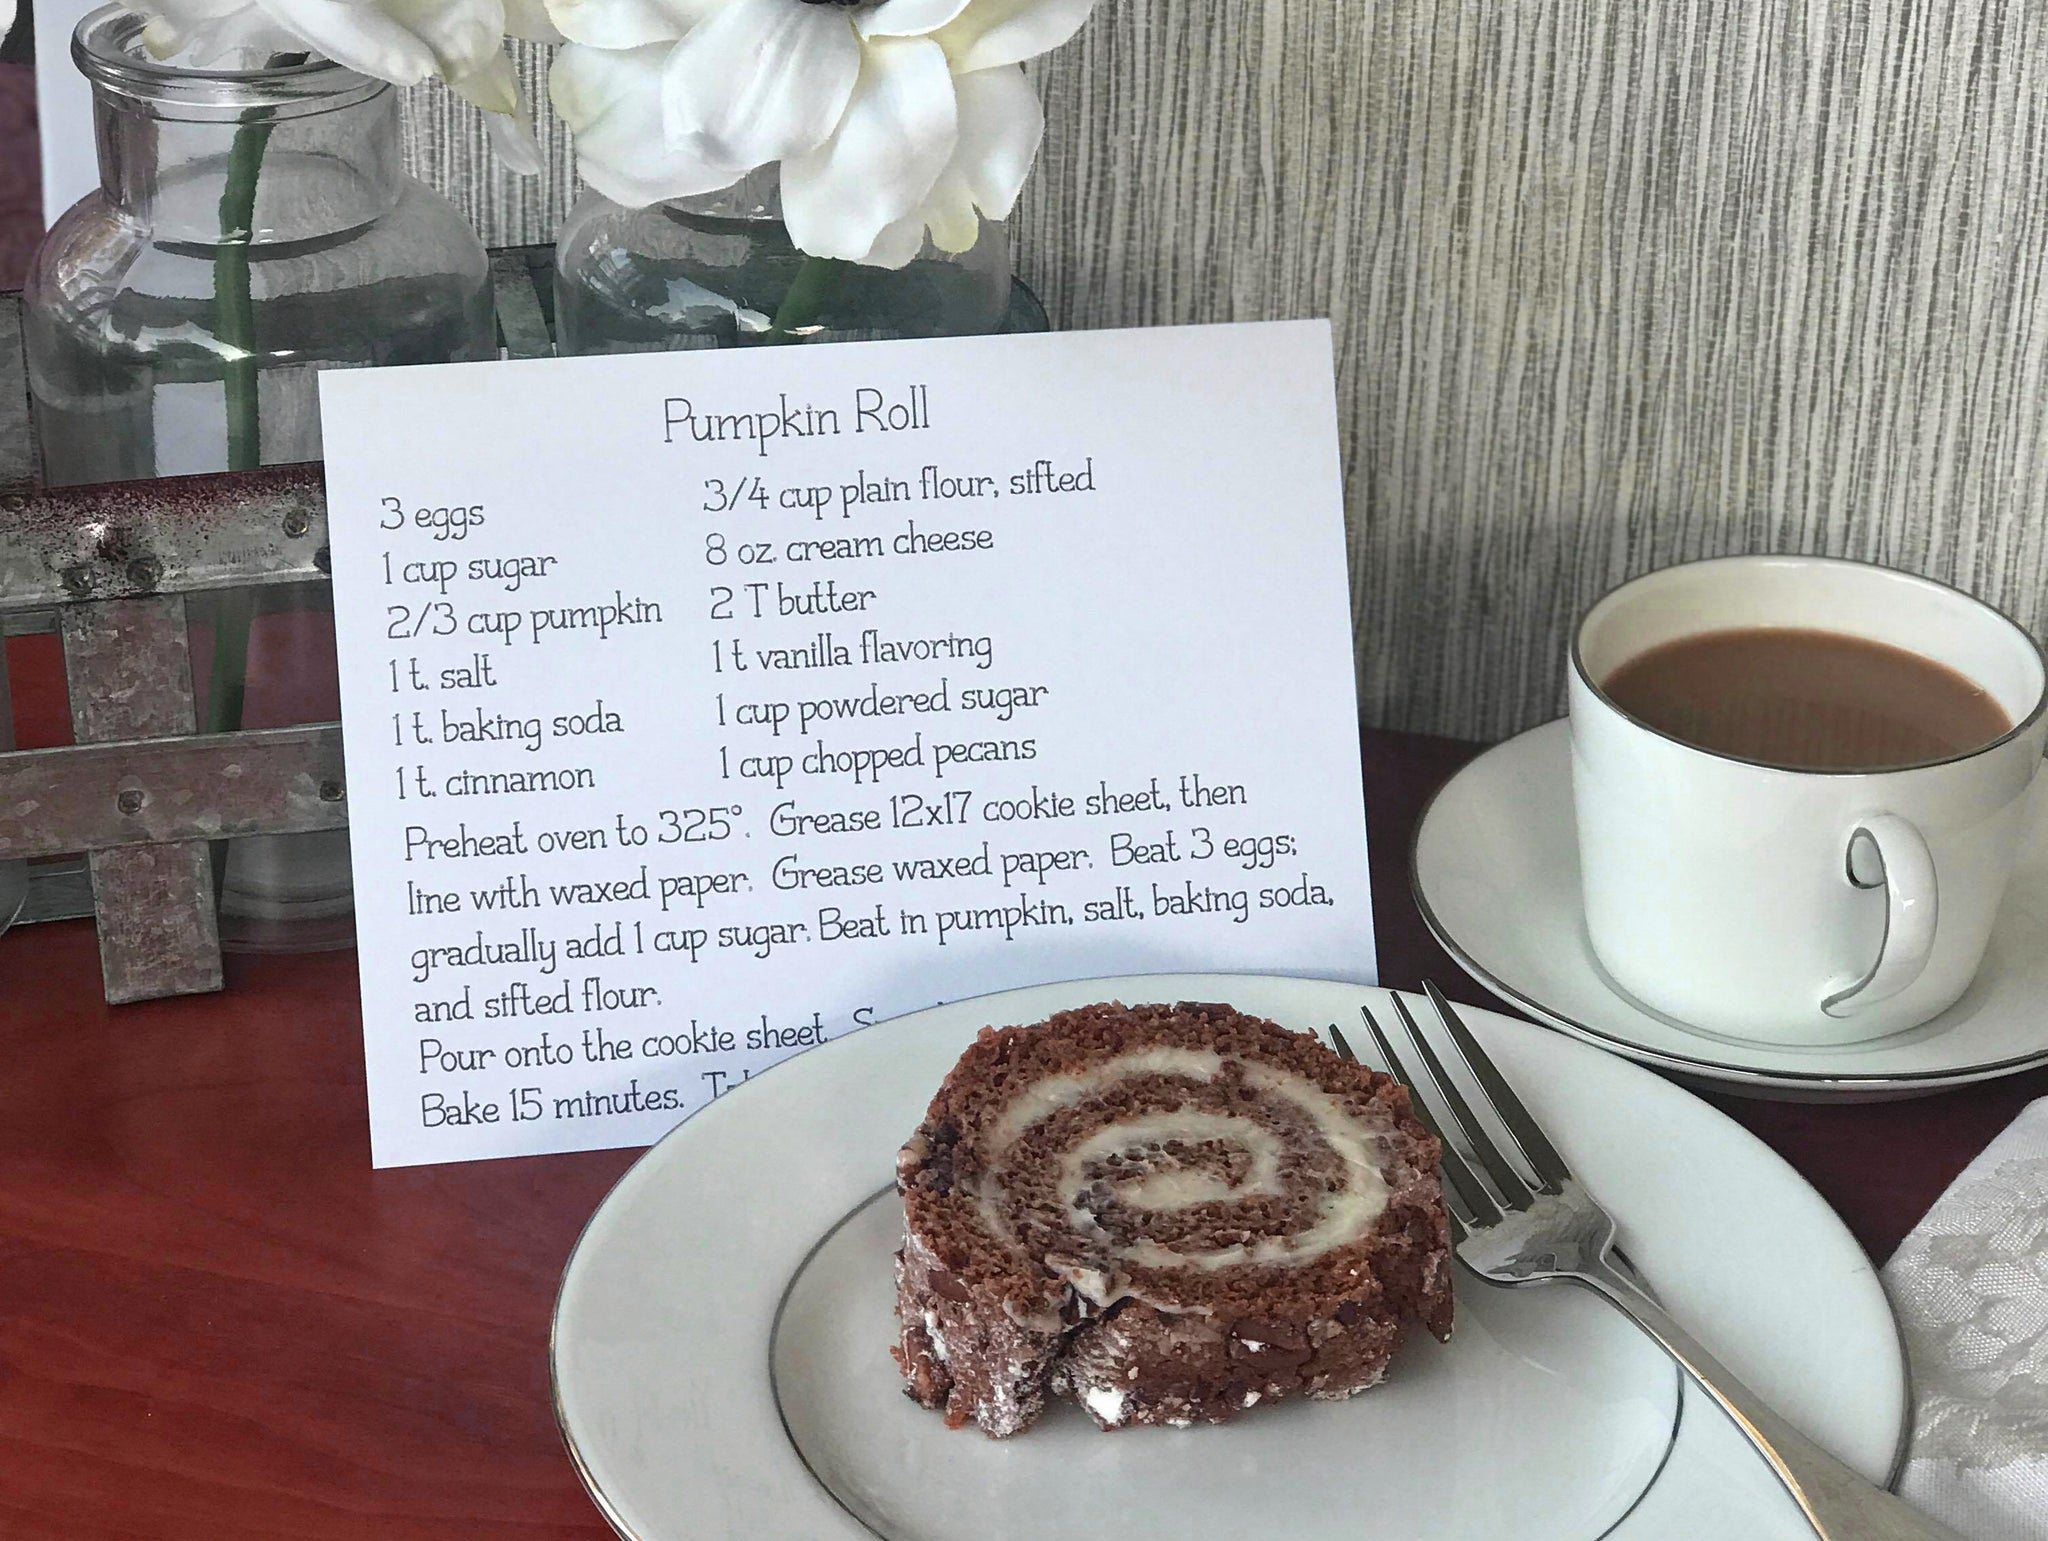 Pumpkin Roll
3 eggs
1 cup sugar
2/3 cup pumpkin
1 t. salt
1 t. baking soda
1 t. cinnamon
3/4 cup plain flour, sifted
8 oz. cream cheese
2 T butter
1 t vanilla flavoring
1 cup powdered sugar
1 cup chopped pecans
Preheat oven to 325°. Grease 12x17 cookie sheet, then
line with waxed paper. Grease waxed paper. Beat 3 eggs;
gradually add 1 cup sugar. Beat in pumpkin, salt, baking soda,
and sifted flour.
Pour onto the cookie sheet.
Bake 15 minutes.